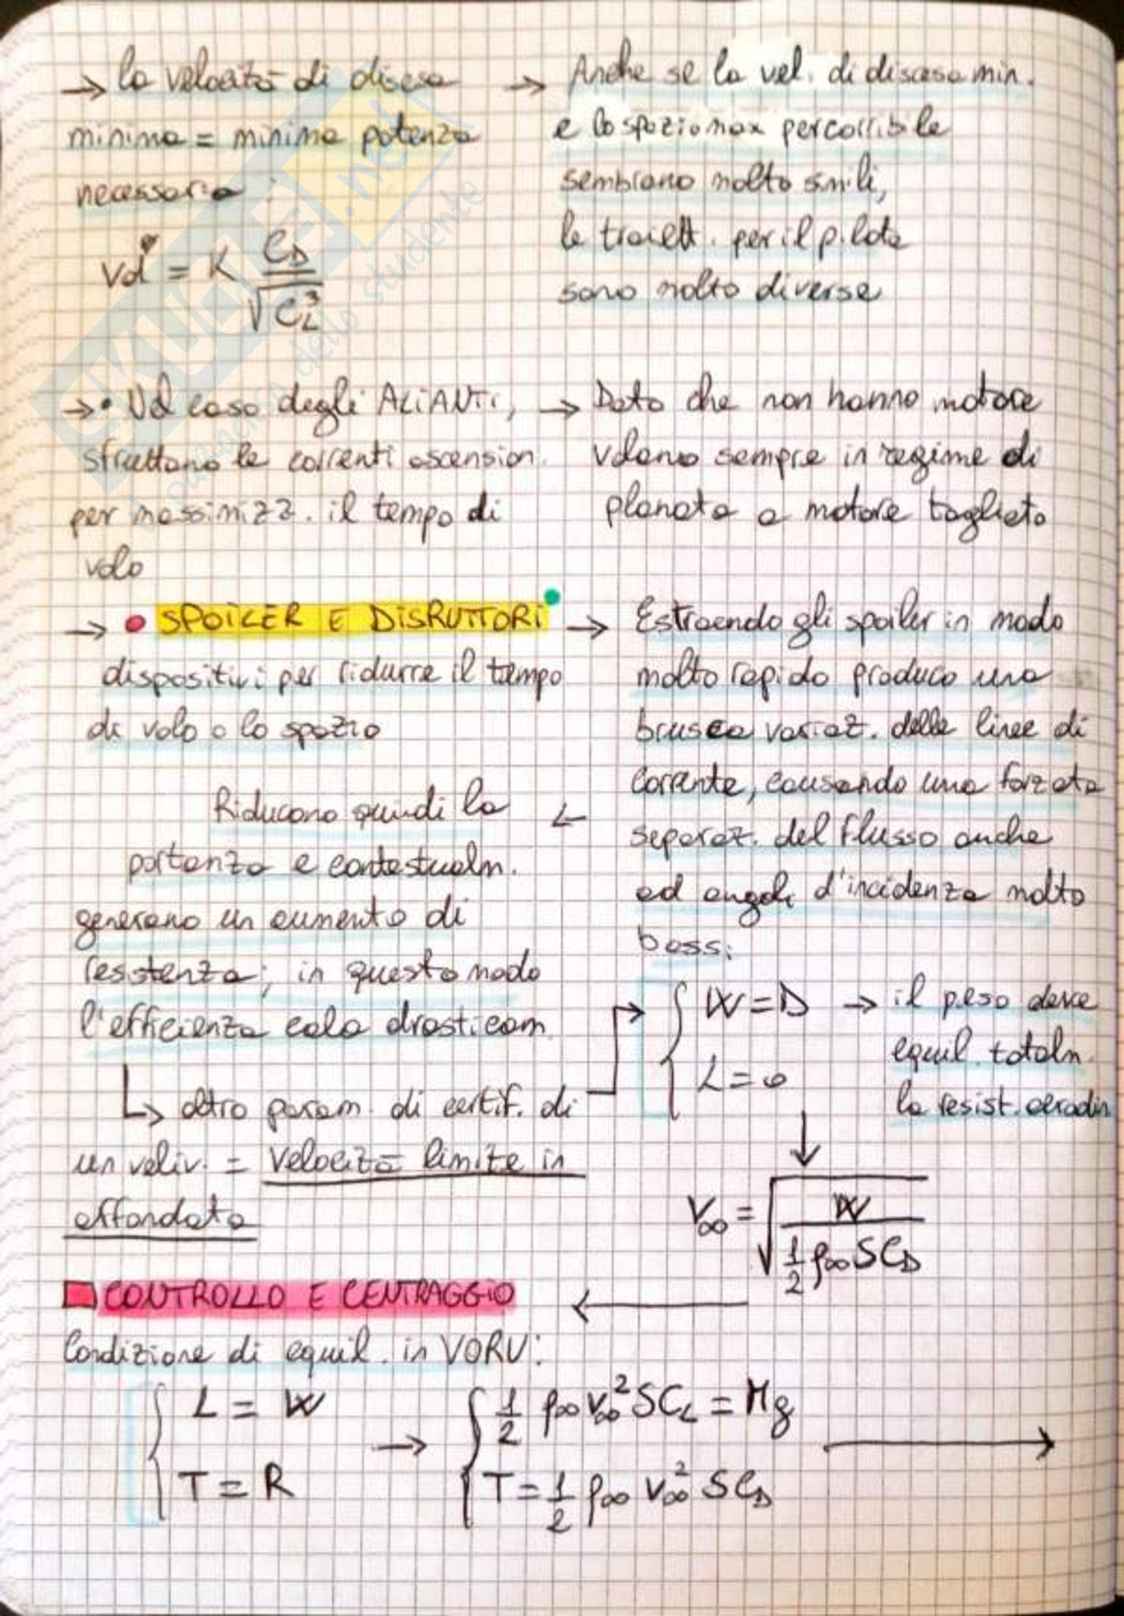 → la velocità di discesa
minima = minima potenza
necessaria :
Vd = K C_D / √C_L³
→ Anche se la vel. di discesa min.
e lo spazio max percorribile
sembrano molto simili,
le traiett. per il pilota
sono molto diverse
→ • Nel caso degli ALIANTI,
sfruttano le correnti ascension.
per massimizz. il tempo di
volo
→ Dato che non hanno motore
volano sempre in regime di
planata o motore tagliato
→ • SPOILER E DISRUTTORI
dispositivi per ridurre il tempo
di volo o lo spazio
→ Estraendo gli spoiler in modo
molto rapido produco una
brusca variaz. delle linee di
corrente, causando una forzata
separaz. del flusso anche
ad angoli d'incidenza molto
bassi
← Riducono quindi la
portanza e contestualm.
generano un aumento di
resistenza; in questo modo
l'efficienza cala drasticam.
↳ altro param. di certif. di
un veliv. = velocità limite in
affondata
→ { W = D → il peso deve
equil. totalm.
la resist. aerodin
L = 0
↓
V∞ = √(W / (1/2 ρ∞ S C_D))
←
CONTROLLO E CENTRAGGIO
Condizione di equil. in VORU:
{ L = W
T = R
→ { 1/2 ρ∞ V∞² S C_L = Mg
T = 1/2 ρ∞ V∞² S C_D
→
SKUOLA.net